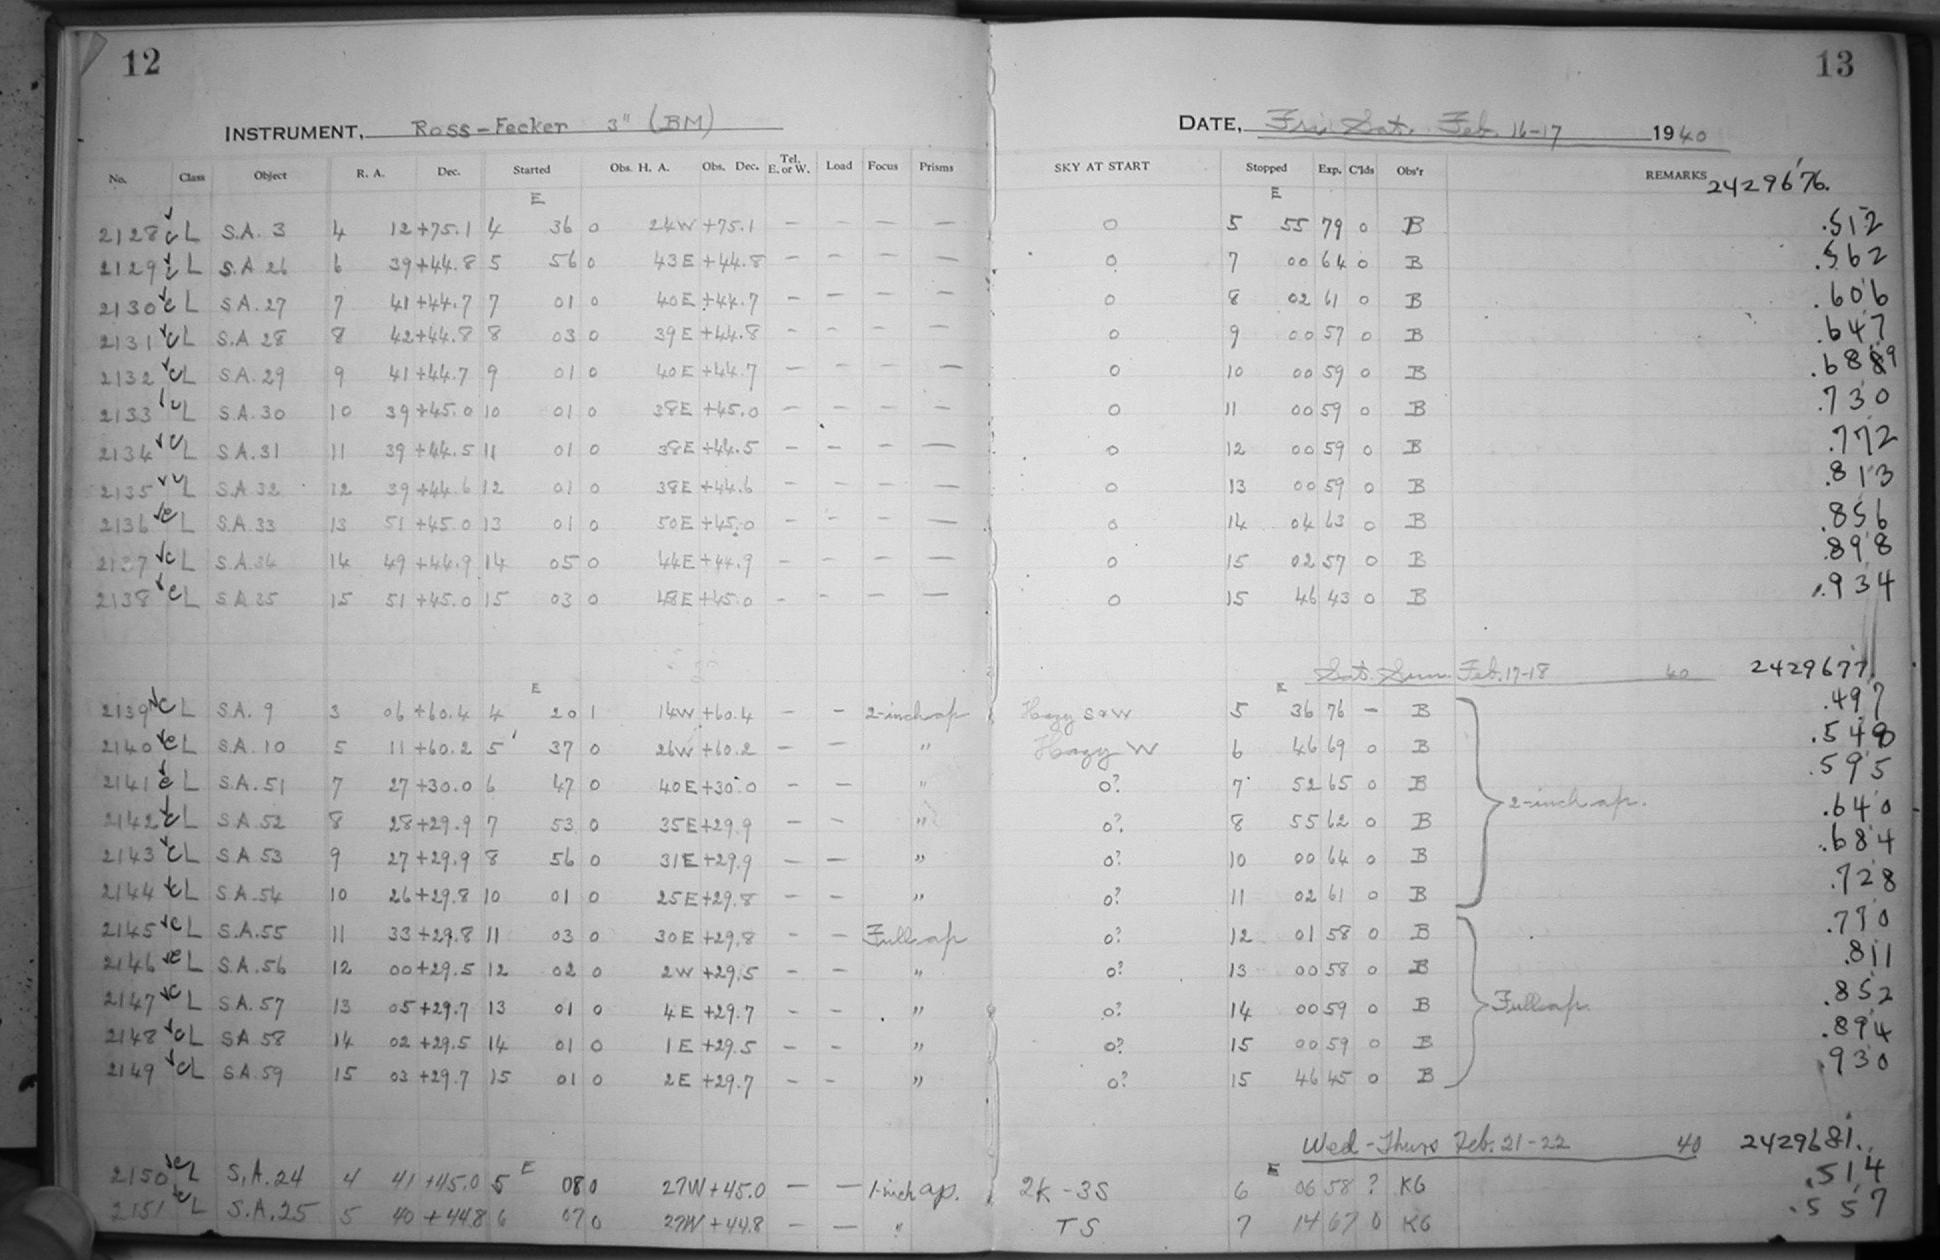 12
13
INSTRUMENT, Ross-Fecker 3" (BM)
DATE, Fri. Sat. Feb. 16-17 1940
No. Class Object R. A. Dec. Started Obs. H. A. Obs. Dec. Tel. E. or W. Load Focus Prisms SKY AT START Stopped Exp. C'lds Obs'r REMARKS 2429676.
E E
2128 cL S.A. 3 4 12 +75.1 4 36 0 24W +75.1 — — — — 0 5 55 79 0 B .512
2129 L S.A 26 6 39 +44.8 5 56 0 43E +44.8 — — — — 0 7 00 64 0 B .562
2130 cL S.A. 27 7 41 +44.7 7 01 0 40E +44.7 — — — — 0 8 02 61 0 B .606
2131 cL S.A 28 8 42 +44.8 8 03 0 39E +44.8 — — — — 0 9 00 57 0 B .647
2132 cL S.A. 29 9 41 +44.7 9 01 0 40E +44.7 — — — — 0 10 00 59 0 B .689
2133 cL S.A. 30 10 39 +45.0 10 01 0 38E +45.0 — — — — 0 11 00 59 0 B .730
2134 cL S.A. 31 11 39 +44.5 11 01 0 38E +44.5 — — — — 0 12 00 59 0 B .772
2135 cL S.A 32 12 39 +44.6 12 01 0 38E +44.6 — — — — 0 13 00 59 0 B .813
2136 cL S.A. 33 13 51 +45.0 13 01 0 50E +45.0 — — — — 0 14 04 63 0 B .856
2137 cL S.A. 34 14 49 +44.9 14 05 0 44E +44.9 — — — — 0 15 02 57 0 B .898
2138 cL S.A 35 15 51 +45.0 15 03 0 48E +45.0 — — — — 0 15 46 43 0 B .934
Sat. Sun. Feb. 17-18 40 2429677
E E
2139 cL S.A. 9 3 06 +60.4 4 20 1 14W +60.4 — — 2-inch ap Hazy S&W 5 36 76 — B .497
2140 cL S.A. 10 5 11 +60.2 5 37 0 26W +60.2 — — " Hazy W 6 46 69 0 B .548
2141 cL S.A. 51 7 27 +30.0 6 47 0 40E +30.0 — — " 0? 7 52 65 0 B .595
2142 cL S.A. 52 8 28 +29.9 7 53 0 35E +29.9 — — " 0? 8 55 62 0 B 2-inch ap. .640
2143 cL S.A 53 9 27 +29.9 8 56 0 31E +29.9 — — " 0? 10 00 64 0 B .684
2144 cL S.A. 54 10 26 +29.8 10 01 0 25E +29.8 — — " 0? 11 02 61 0 B .728
2145 cL S.A. 55 11 33 +29.8 11 03 0 30E +29.8 — — Full ap 0? 12 01 58 0 B .770
2146 cL S.A. 56 12 00 +29.5 12 02 0 2W +29.5 — — " 0? 13 00 58 0 B .811
2147 cL S.A. 57 13 05 +29.7 13 01 0 4E +29.7 — — " 0? 14 00 59 0 B Full ap. .852
2148 cL S.A 58 14 02 +29.5 14 01 0 1E +29.5 — — " 0? 15 00 59 0 B .894
2149 cL S.A. 59 15 03 +29.7 15 01 0 2E +29.7 — — " 0? 15 46 45 0 B .930
Wed-Thurs Feb. 21-22 40 2429681.
E E
2150 cL S.A. 24 4 41 +45.0 5 08 0 27W +45.0 — — 1-inch ap. 2K-3S 6 06 58 ? KG .514
2151 cL S.A. 25 5 40 +44.8 6 07 0 27W +44.8 — — " TS 7 14 67 0 KG .557